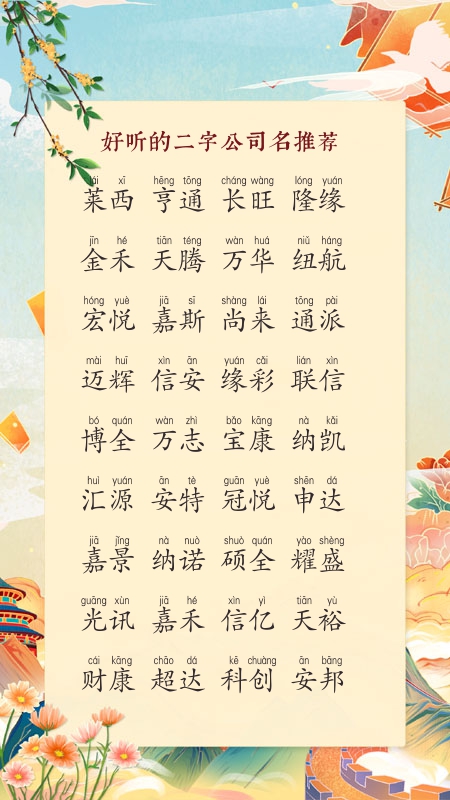 好听的二字公司名推荐
lái xī hēng tōng cháng wàng lóng yuán
莱西 亨通 长旺 隆缘
jīn hé tiān téng wàn huá niǔ háng
金禾 天腾 万华 纽航
hóng yuè jiā sī shàng lái tōng pài
宏悦 嘉斯 尚来 通派
mài huī xìn ān yuán cǎi lián xìn
迈辉 信安 缘彩 联信
bó quán wàn zhì bǎo kāng nà kǎi
博全 万志 宝康 纳凯
huì yuán ān tè guān yuè shēn dá
汇源 安特 冠悦 申达
jiā jǐng nà nuò shuò quán yào shèng
嘉景 纳诺 硕全 耀盛
guāng xùn jiā hé xìn yì tiān yù
光讯 嘉禾 信亿 天裕
cái kāng chāo dá kē chuàng ān bāng
财康 超达 科创 安邦